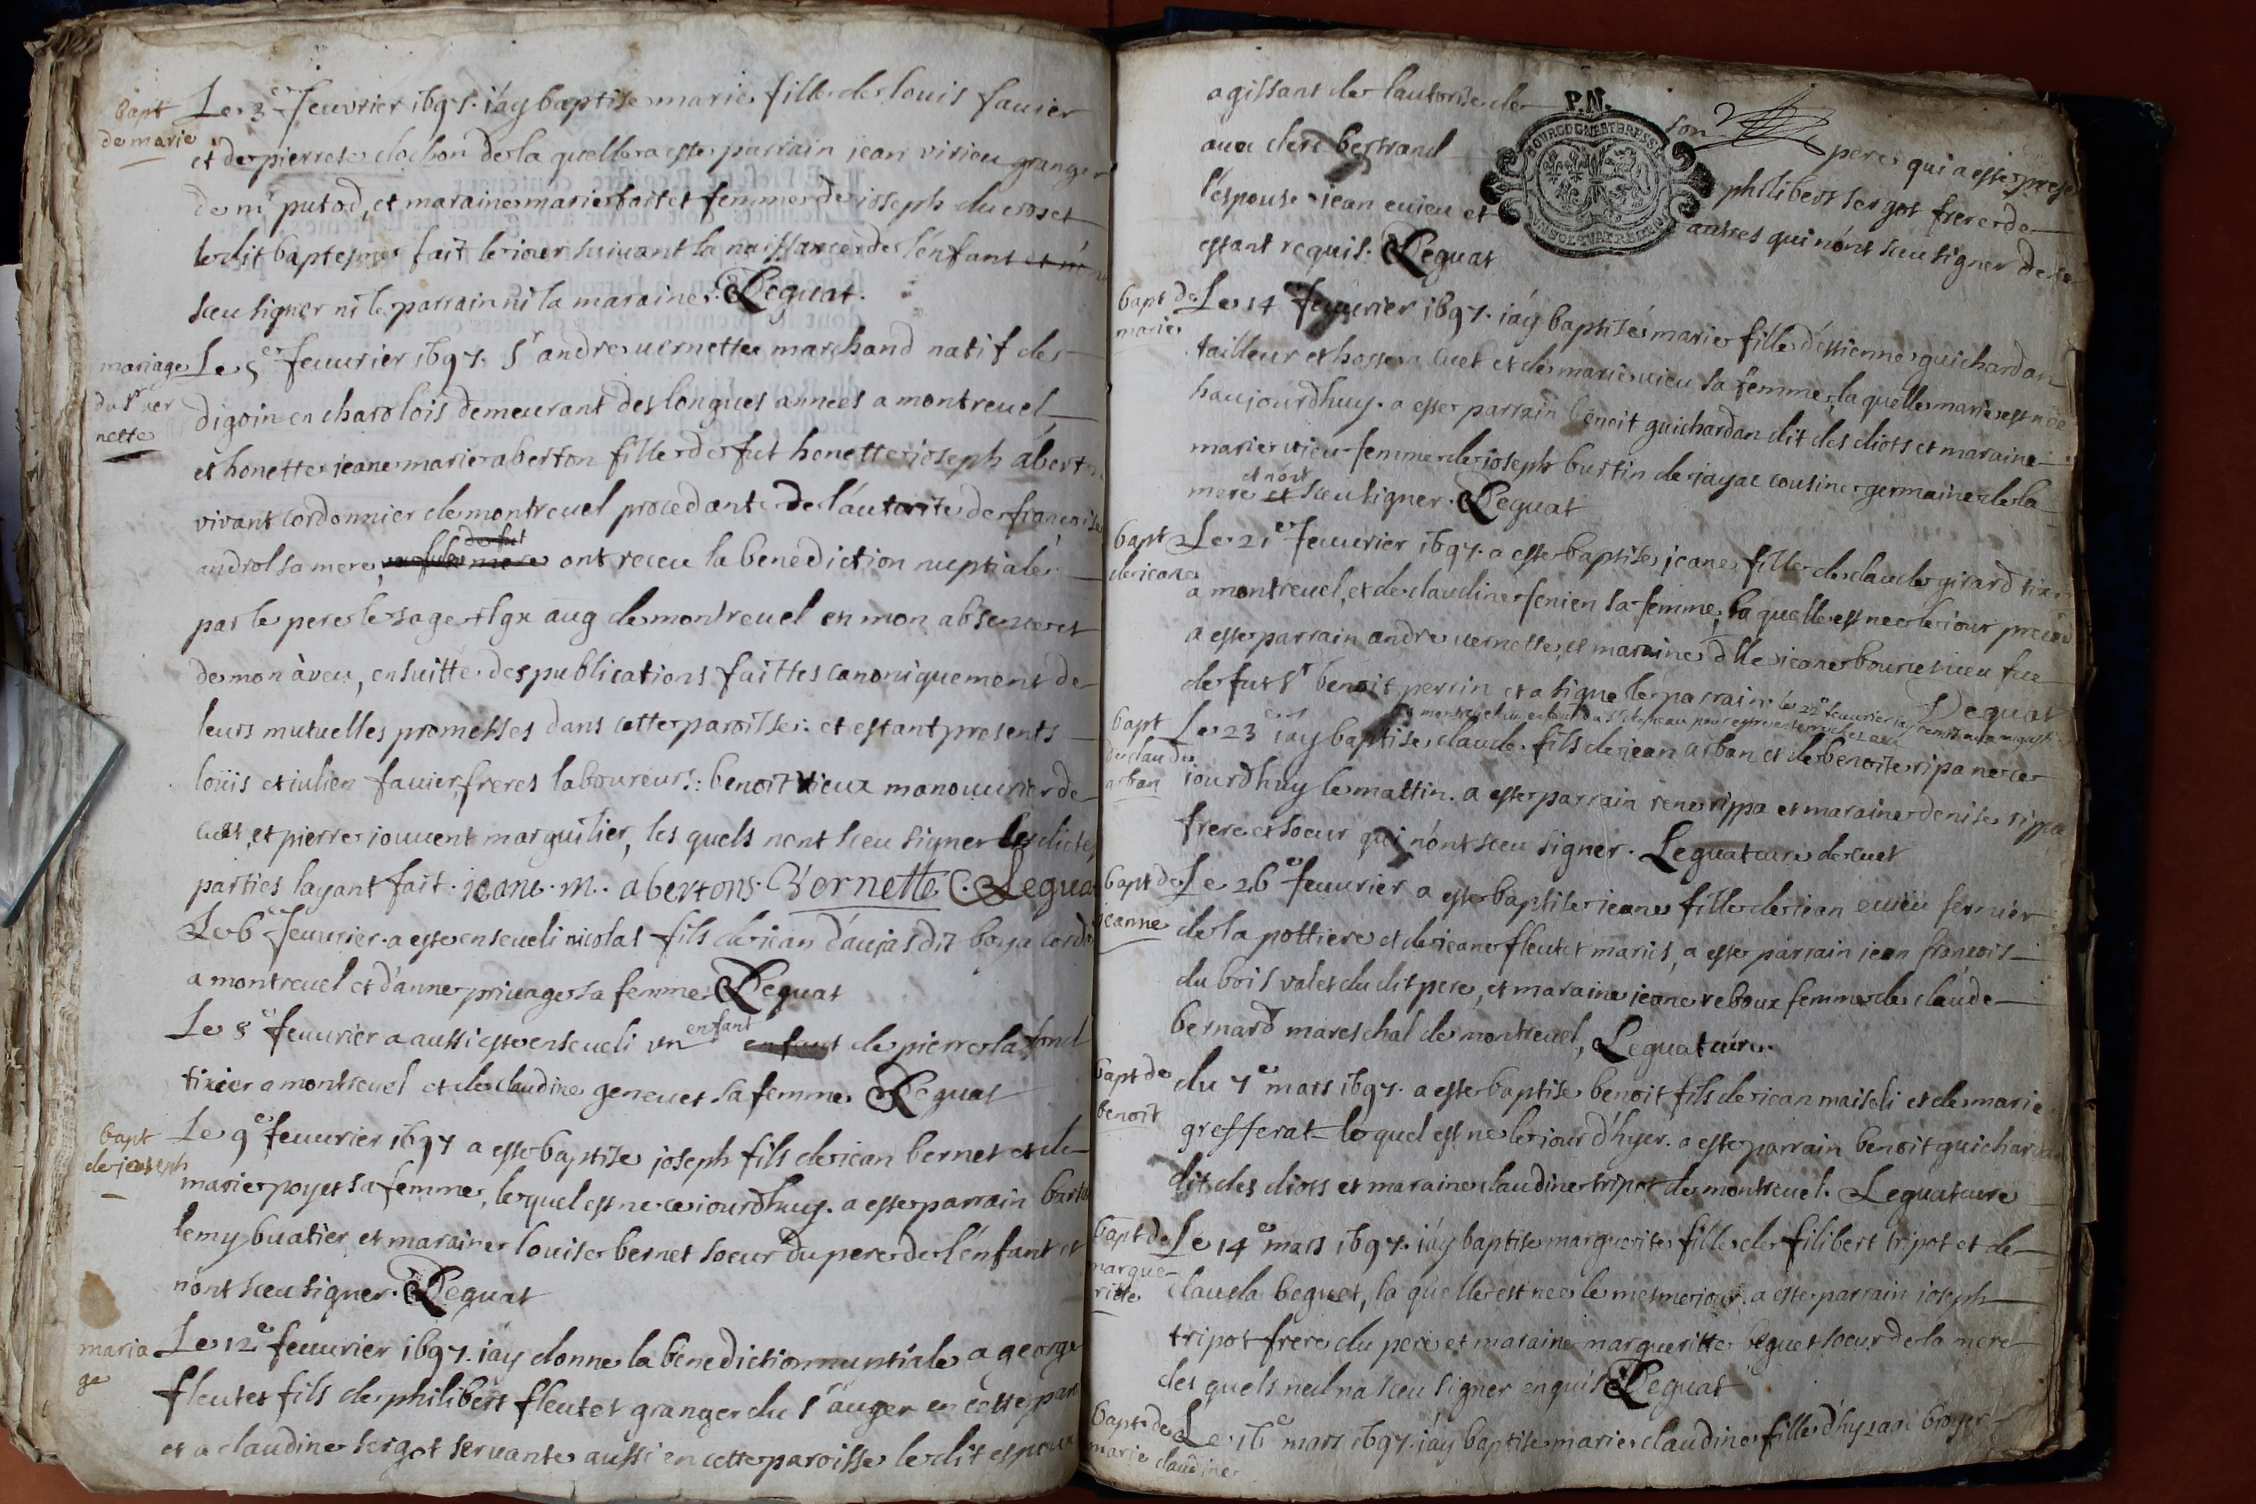 bapt
de marie
Le 3e feuvrier 1697. j'ay baptise marie fille de louis favier
et de pierrete clochon de la quelle a este parrain jean virieu granger
de mr putod, et maraine marie fortet femme de joseph du croset
ledit baptesme fait le jour suivant la naissance de l'enfant et n
sceu signer ni le parrain ni la maraine. Leguat.
mariage
du sr ver
nette
Le 5e feuvrier 1697. sr andre vernette marchand natif de
digoin en charolois demeurant des longues années a montrevel
et honette jeane marie aberton fille de fut honette joseph abert
vivant cordonnier de montrevel procedante de l'autorite de francoise
androl sa mere, de fut ont receu la benediction nuptiale
par le pere le sage rlgx aug de montrevel en mon absence et
de mon àveu, ensuitte des publications faittes canoniquement de
leurs mutuelles promesses dans cette paroisse: et estant presents
loüis et julien favier freres laboureurs: benoit vieux manouvrier de
cuet, et pierre jouvent marguilier, les quels n'ont sceu signer les dictes
parties layant fait. jeane. m. abertons. Vernette. Leguat
Le 6e feuvrier a este enseveli nicolas fils de jean d'aujas dit boya cord
a montrevel et d'anne privage sa femme Leguat
Le 8e feuvrier a aussi este enseveli un enfant enfant de pierre la fond
tixier a montrevel et de claudine genevet sa femme Leguat
bapt
de joseph
Le 9e feuvrier 1697 a este baptise joseph fils de jean bernet et de
marie poyet sa femme, lequel est ne ce jourdhuy. a este parrain barto
lemy buatier et maraine louise bernet soeur du pere de l'enfant et
n'ont sceu signer. Leguat
maria
ge
Le 12e feuvrier 1697. j'ay donne la benediction nuptiale a george
fleutet fils de philibert fleutet granger du sr auger en cette paro
et a claudine sergot servante aussi en cette paroisse ledit espoux
agissant de l'autorite de son pere qui a este prese
P.N.
BOURGOGNE ET BRESSE
auec clere bertrand philibert sergot frere de
l'espouse jean euieu et autres qui n'ont sceu signer de ce
estant requis. Leguat
bapt de
marie
Le 14e feuvrier 1697. j'ay baptisé marie fille d'estienne guichardan
tailleur et hoste a cuet et de marie vieu sa femme, la quelle marie est née
haujourdhuy. a este parrain benoit guichardan dit des diots et maraine
marie vieu femme de joseph burtin de jayac cousine germaine de la
mere et et n'ont sceu signer. Leguat
bapt
de jeane
Le 21e feuvrier 1697. a este baptise jeane fille de claude girard tix
a montrevel, et de claudine fenien sa femme, la quelle est nee le jour preced
a este parrain andre vernette, et maraine dlle jeane bourie
de fut sr benoit perrin et a signe le parrain. Leguat
le 22e feuvrier
bapt
de claude
arban
Le 23e j'ay baptise claude fils de jean arban et de benoite ripa ne ce
jourdhuy le mattin. a este parrain rene rippa et maraine denise rippa
frere et soeur qui n'ont sceu signer. Leguat cure de cuet
bapt de
jeanne
Le 26e feuvrier a este baptise jeane fille de jean euieu fermier
de la pottiere et de jeane fleutet mariés, a este parrain jean francois
du bois valet du dit pere, et maraine jeane reboux femme de claude
bernard mareschal de montrevel, Leguat cure.
bapt de
benoit
du 7e mars 1697. a este baptise benoit fils de jean maisdi et de marie
grefferat lequel est ne le jour d'hyer. a este parrain benoit guichardan
dit des diots et maraine claudine tripot de montrevel. Leguat cure
bapt de
margue
ritte
Le 14e mars 1697. j'ay baptise marguerite fille de filibert tripot et de
clauda beguet, la quelle est nee le mesme jour. a este parrain joseph
tripot frere du pere et maraine margueritte beguet soeur de la mere
des quels neul na sceu signer enquis Leguat
bapt de
marie claudine
Le 16e mars 1697. j'ay baptise marie claudine fille d'hysaac broyer